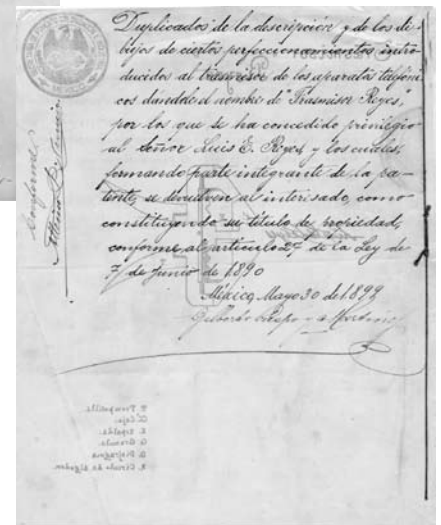 Duplicados de la descripción y de los di-
bujos de ciertos perfeccionamientos intro-
ducidos al trasmisor de los aparatos telefóni-
cos dándole el nombre de "Trasmisor Reyes,"
por los que se ha concedido privilegio
al Señor Luis E. Reyes y los cuales,
formando parte integrante de la pa-
tente, se devuelven al interesado, como
constituyendo su título de propiedad,
conforme al artículo 27 de la Ley de
7 de Junio de 1890
México, Mayo 30 de 1899
Gilberto Crespo y Martínez
Conforme
T. Trompetilla.
C. Caja.
E. Espalda.
G. Granula
D. Diafragma
A. Círculo de Algodon.